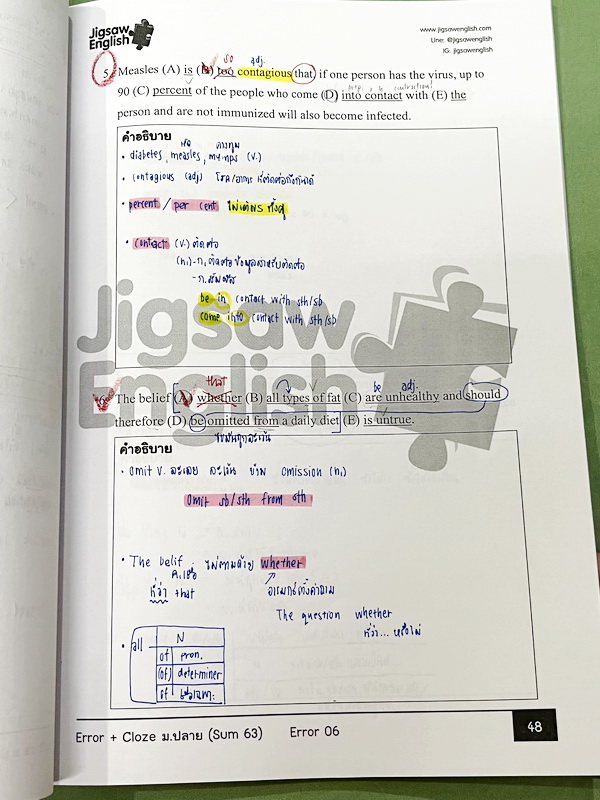 Jigsaw English
www.jigsawenglish.com
Line: @jigsawenglish
IG: jigsawenglish
so adj.
5. Measles (A) is (B) too contagious that, if one person has the virus, up to
90 (C) percent of the people who come (D) into contact with (E) the
person and are not immunized will also become infected.
คำอธิบาย
หัด คางทูม
• diabetes, measles, mumps (n.)
• contagious (adj) โรค/อาการ ที่ติดต่อถึงกันได้
• percent / per cent ไม่เติม s ทั้งคู่
• contact (v.) ติดต่อ
(n.) - ก. ติดต่อ ข้อมูลสำหรับติดต่อ
- ก. สัมผัส
be in contact with sth/sb
come into contact with sth/sb
Jigsaw
English
that be adj.
6. The belief (A) whether (B) all types of fat (C) are unhealthy and should
therefore (D) be omitted from a daily diet (E) is untrue.
คำอธิบาย
• omit v. ละเลย ละเว้น omission (n.)
Omit sb/sth from sth
• The belif ไม่ตามด้วย whether
ที่ว่า that
The question whether
ที่ว่า... หรือไม่
• all N
of pron.
(of) determiner
of
Error + Cloze ม.ปลาย (Sum 63) Error 06 48